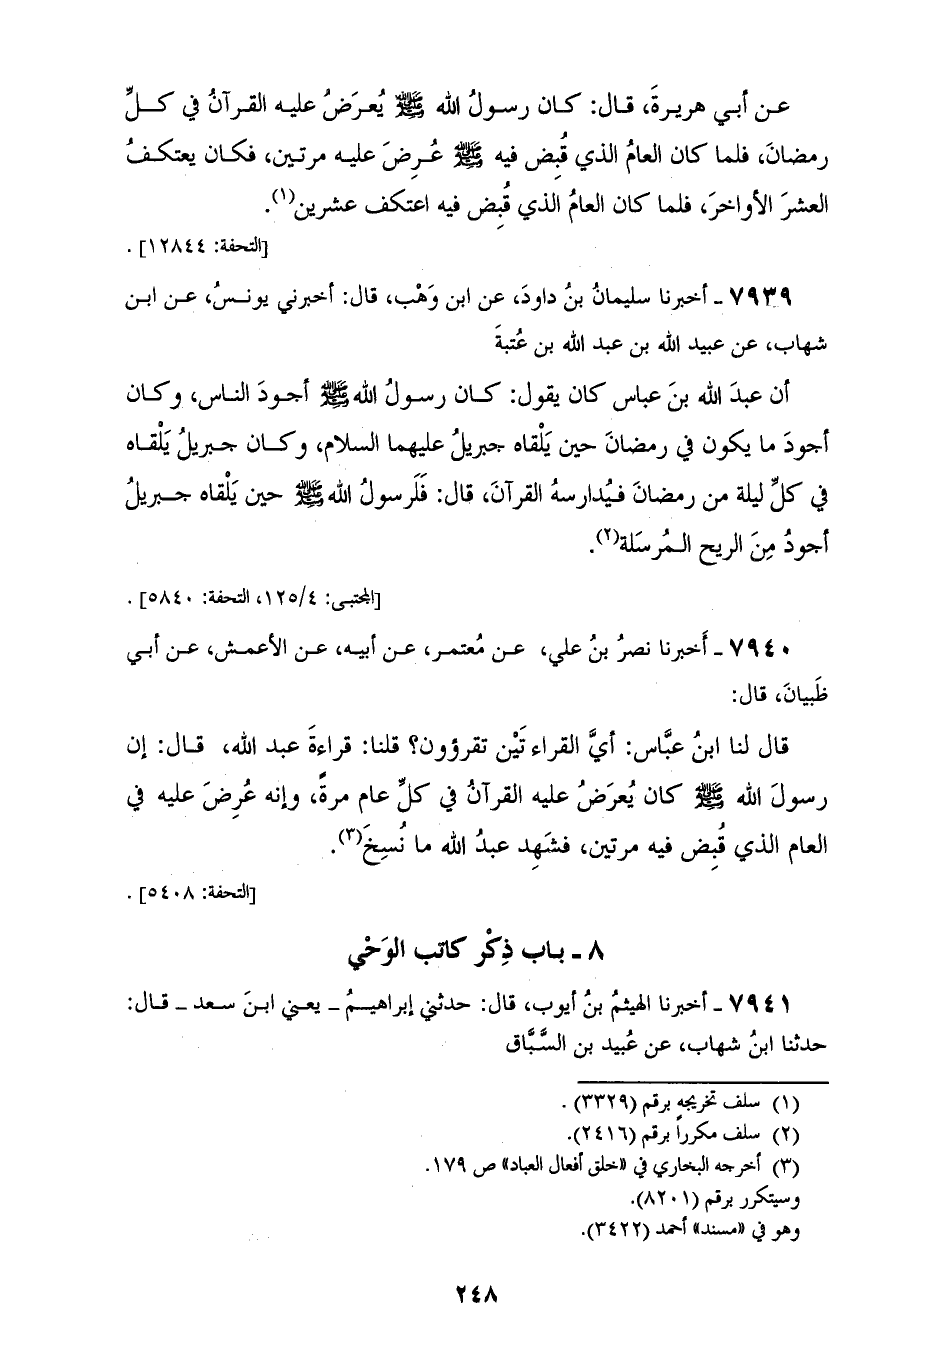 عن أبي هريرةَ، قال: كان رسولُ الله ﷺ يُعرَضُ عليه القرآنُ في كلِّ
رمضانَ، فلما كان العامُ الذي قُبِض فيه ﷺ عُرِضَ عليه مرتين، فكان يعتكفُ
العشرَ الأواخرَ، فلما كان العامُ الذي قُبِض فيه اعتكف عشرين(١).
[التحفة: ١٢٨٤٤] .
٧٩٣٩ ـ أخبرنا سليمانُ بنُ داودَ، عن ابن وَهْب، قال: أخبرني يونسُ، عن ابن
شهاب، عن عبيد الله بن عبد الله بن عُتبةَ
أن عبدَ الله بنَ عباس كان يقول: كان رسولُ الله ﷺ أجودَ الناس، وكان
أجودَ ما يكون في رمضانَ حين يَلْقاه جبريلُ عليهما السلام، وكان جبريلُ يَلْقاه
في كلِّ ليلة من رمضانَ فيُدارسهُ القرآنَ، قال: فلَرسولُ الله ﷺ حين يَلْقاه جبريلُ
أجودُ مِنَ الريح المُرسَلة(٢).
[المجتبى: ١٢٥/٤، التحفة: ٥٨٤٠] .
٧٩٤٠ ـ أَخبرنا نصرُ بنُ علي، عن مُعتمر، عن أبيه، عن الأعمش، عن أبي
ظَبيانَ، قال:
قال لنا ابنُ عبَّاس: أيَّ القراءتَيْن تقرؤون؟ قلنا: قراءةَ عبد الله، قال: إن
رسولَ الله ﷺ كان يُعرَضُ عليه القرآنُ في كلِّ عام مرةً، وإنه عُرِضَ عليه في
العام الذي قُبِض فيه مرتين، فشَهِد عبدُ الله ما نُسِخَ(٣).
[التحفة: ٥٤٠٨] .
٨ ـ باب ذِكْر كاتب الوَحْي
٧٩٤١ ـ أخبرنا الهيثمُ بنُ أيوب، قال: حدثني إبراهيمُ ـ يعني ابنَ سعد ـ قال:
حدثنا ابنُ شهاب، عن عُبيد بن السَّبَّاق
(١) سلف تخريجه برقم (٣٣٢٩) .
(٢) سلف مكرراً برقم (٢٤١٦).
(٣) أخرجه البخاري في «خلق أفعال العباد» ص ١٧٩.
وسيتكرر برقم (٨٢٠١).
وهو في «مسند» أحمد (٣٤٢٢).
٢٤٨